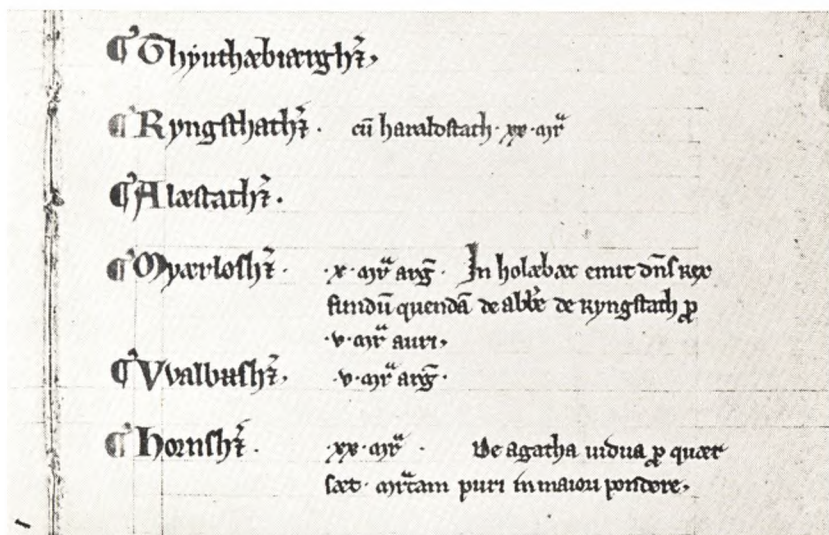 ¶ Thynthæbiærghꝝ,
¶ Ryngsthathꝝ. cū haraldstath. xx. mͬ
¶ Alæstathꝝ.
¶ Mærloshꝝ. x. mͬ arḡ. In holæbæc emit dn̄s rex
fundū quendā de abb̄e de Ryngstath ꝑ
v. mͬ auri,
¶ Vvalbushꝝ, v. mͬ arḡ.
¶ Hornshꝝ. xx. mͬ. De agatha uidua ꝑ quær
sæt. mr̄cam puri in maiori pondere,